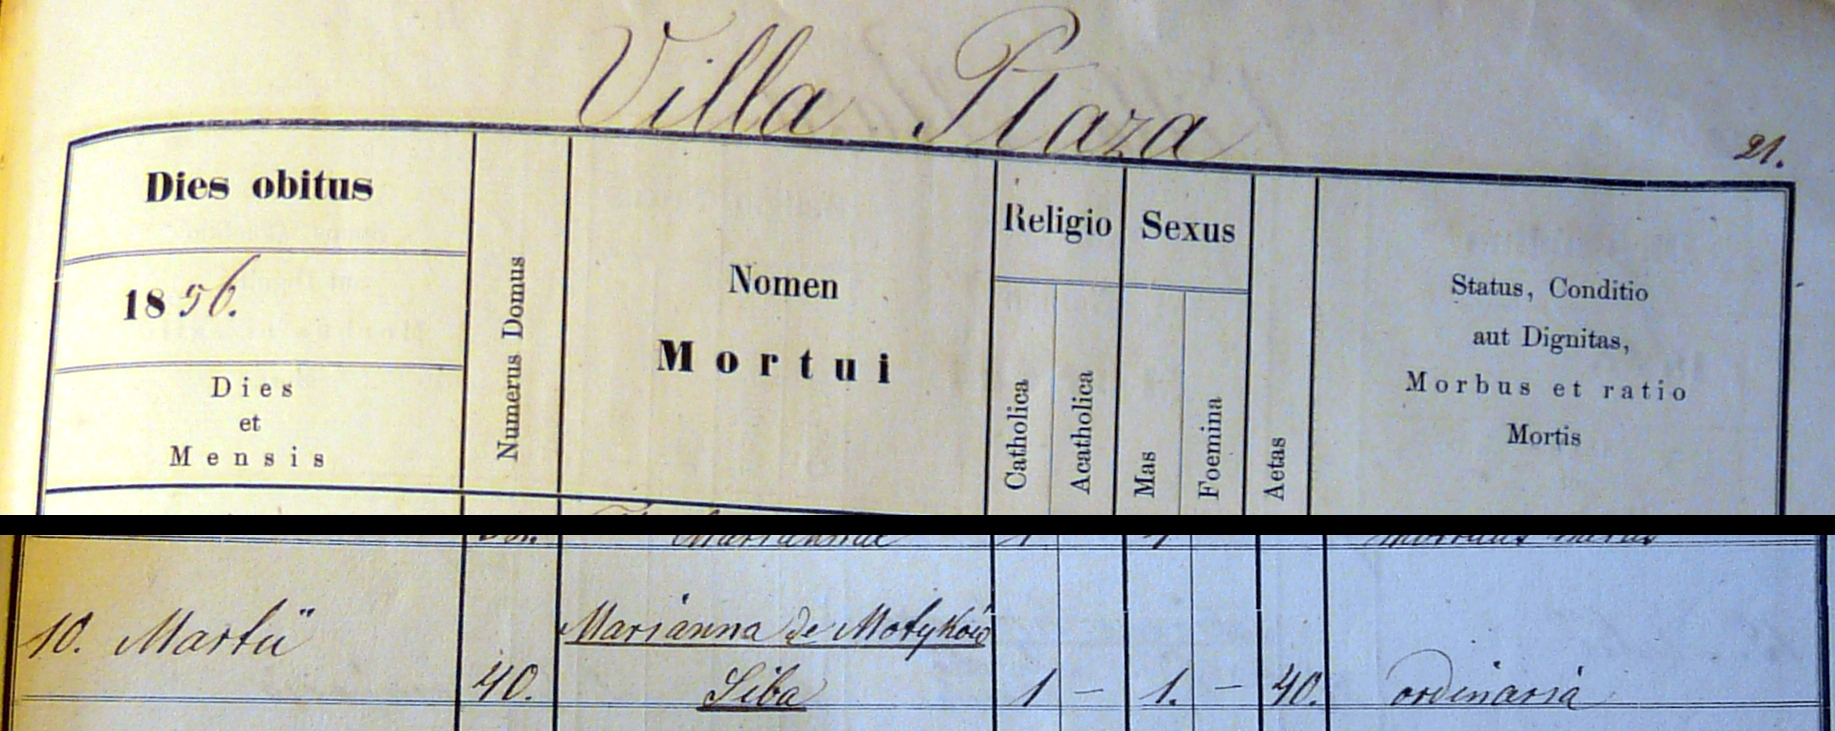 Villa Płaza
21.
Dies obitus
1856.
Dies
et
Mensis
Numerus Domus
Nomen
Mortui
Religio
Catholica
Acatholica
Sexus
Mas
Foemina
Aetas
Status, Conditio
aut Dignitas,
Morbus et ratio
Mortis
Mariannae 1 1
10. Martii 40. Marianna de Motyków
Siba 1 – 1. – 40. ordinaria